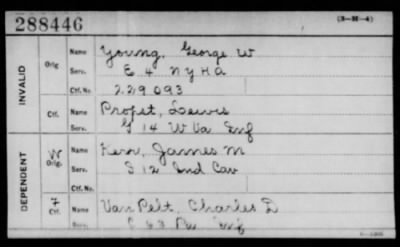 288446
INVALID
Orig. Name Young, George W
Serv. E 4 NYHA
Ctf. No. 229093
Ctf. Name Propst, Lewis
Serv. G 14 W Va Inf
DEPENDENT
W Orig. Name Kerr, James M
Serv. S 12 Ind Cav
Ctf. No.
F Ctf. Name Van Pelt, Charles D
Serv. C 63 Inf